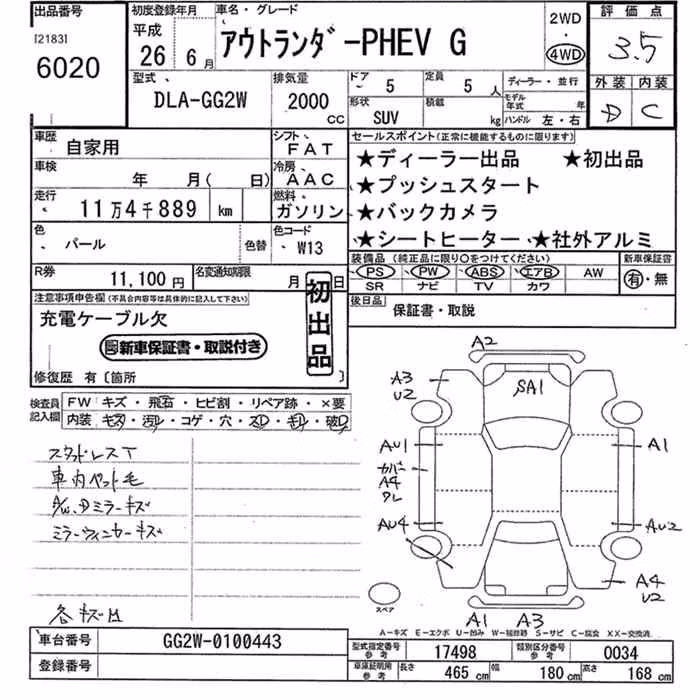 出品番号
[2183]
6020
初度登録年月
平成
26 6月
車名・グレード
アウトランダ-PHEV G
2WD
・
4WD
評価点
3.5
外装 内装
D C
型式
DLA-GG2W
排気量
2000
CC
ドア
5
定員
5 人
形状
SUV
積載
kg
ディーラー・並行
モデル年式 年
ハンドル 左・右
車歴
自家用
シフト
FAT
車検
年 月( 日)
冷房
AAC
走行
11万4千889 km
燃料
ガソリン
色
パール
色替
色コード
W13
R券
11,100円
名変通知期限
月 日
セールスポイント(正常に機能するものに限ります)
★ディーラー出品 ★初出品
★プッシュスタート
★バックカメラ
★シートヒーター ★社外アルミ
装備品 (純正品に限り○をつけてください)
PS PW ABS エアB AW
SR ナビ TV カワ
新車保証書
有・無
後日品
保証書・取説
注意事項申告欄(不具合内容等は具体的に記入して下さい)
充電ケーブル欠
新車保証書・取説付き
初出品
修復歴 有〔箇所 〕
検査員記入欄
FW キズ・飛石・ヒビ割・リペア跡・×要
内装・キズ・汚レ・コゲ・穴・スレ・キレ・破レ
スタッドレスT
車内ペット毛
A/W,Dミラーキズ
ミラーウィンカーキズ
各キズ凹
A2
A3
U2
SA1
AU1
A1
カバー
A4
ワレ
AU4
AU2
A4
U2
A1 A3
スペア
A-キズ E-エクボ U-凹み W-補修跡 S-サビ C-腐食 XX-交換済
車台番号
GG2W-0100443
登録番号
型式指定番号 参考
17498
類別区分番号 参考
0034
車庫証明用 参考
長さ 465 cm
幅 180 cm
高さ 168 cm